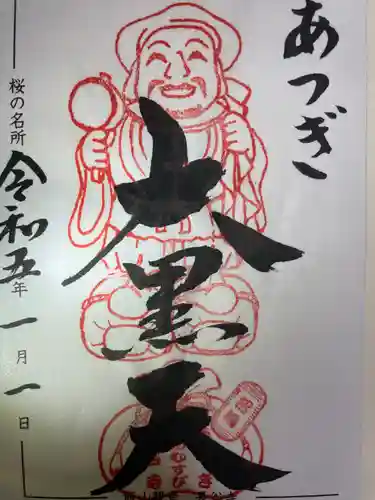 あつぎ
大黒天
桜の名所
令和五年一月一日
むすび